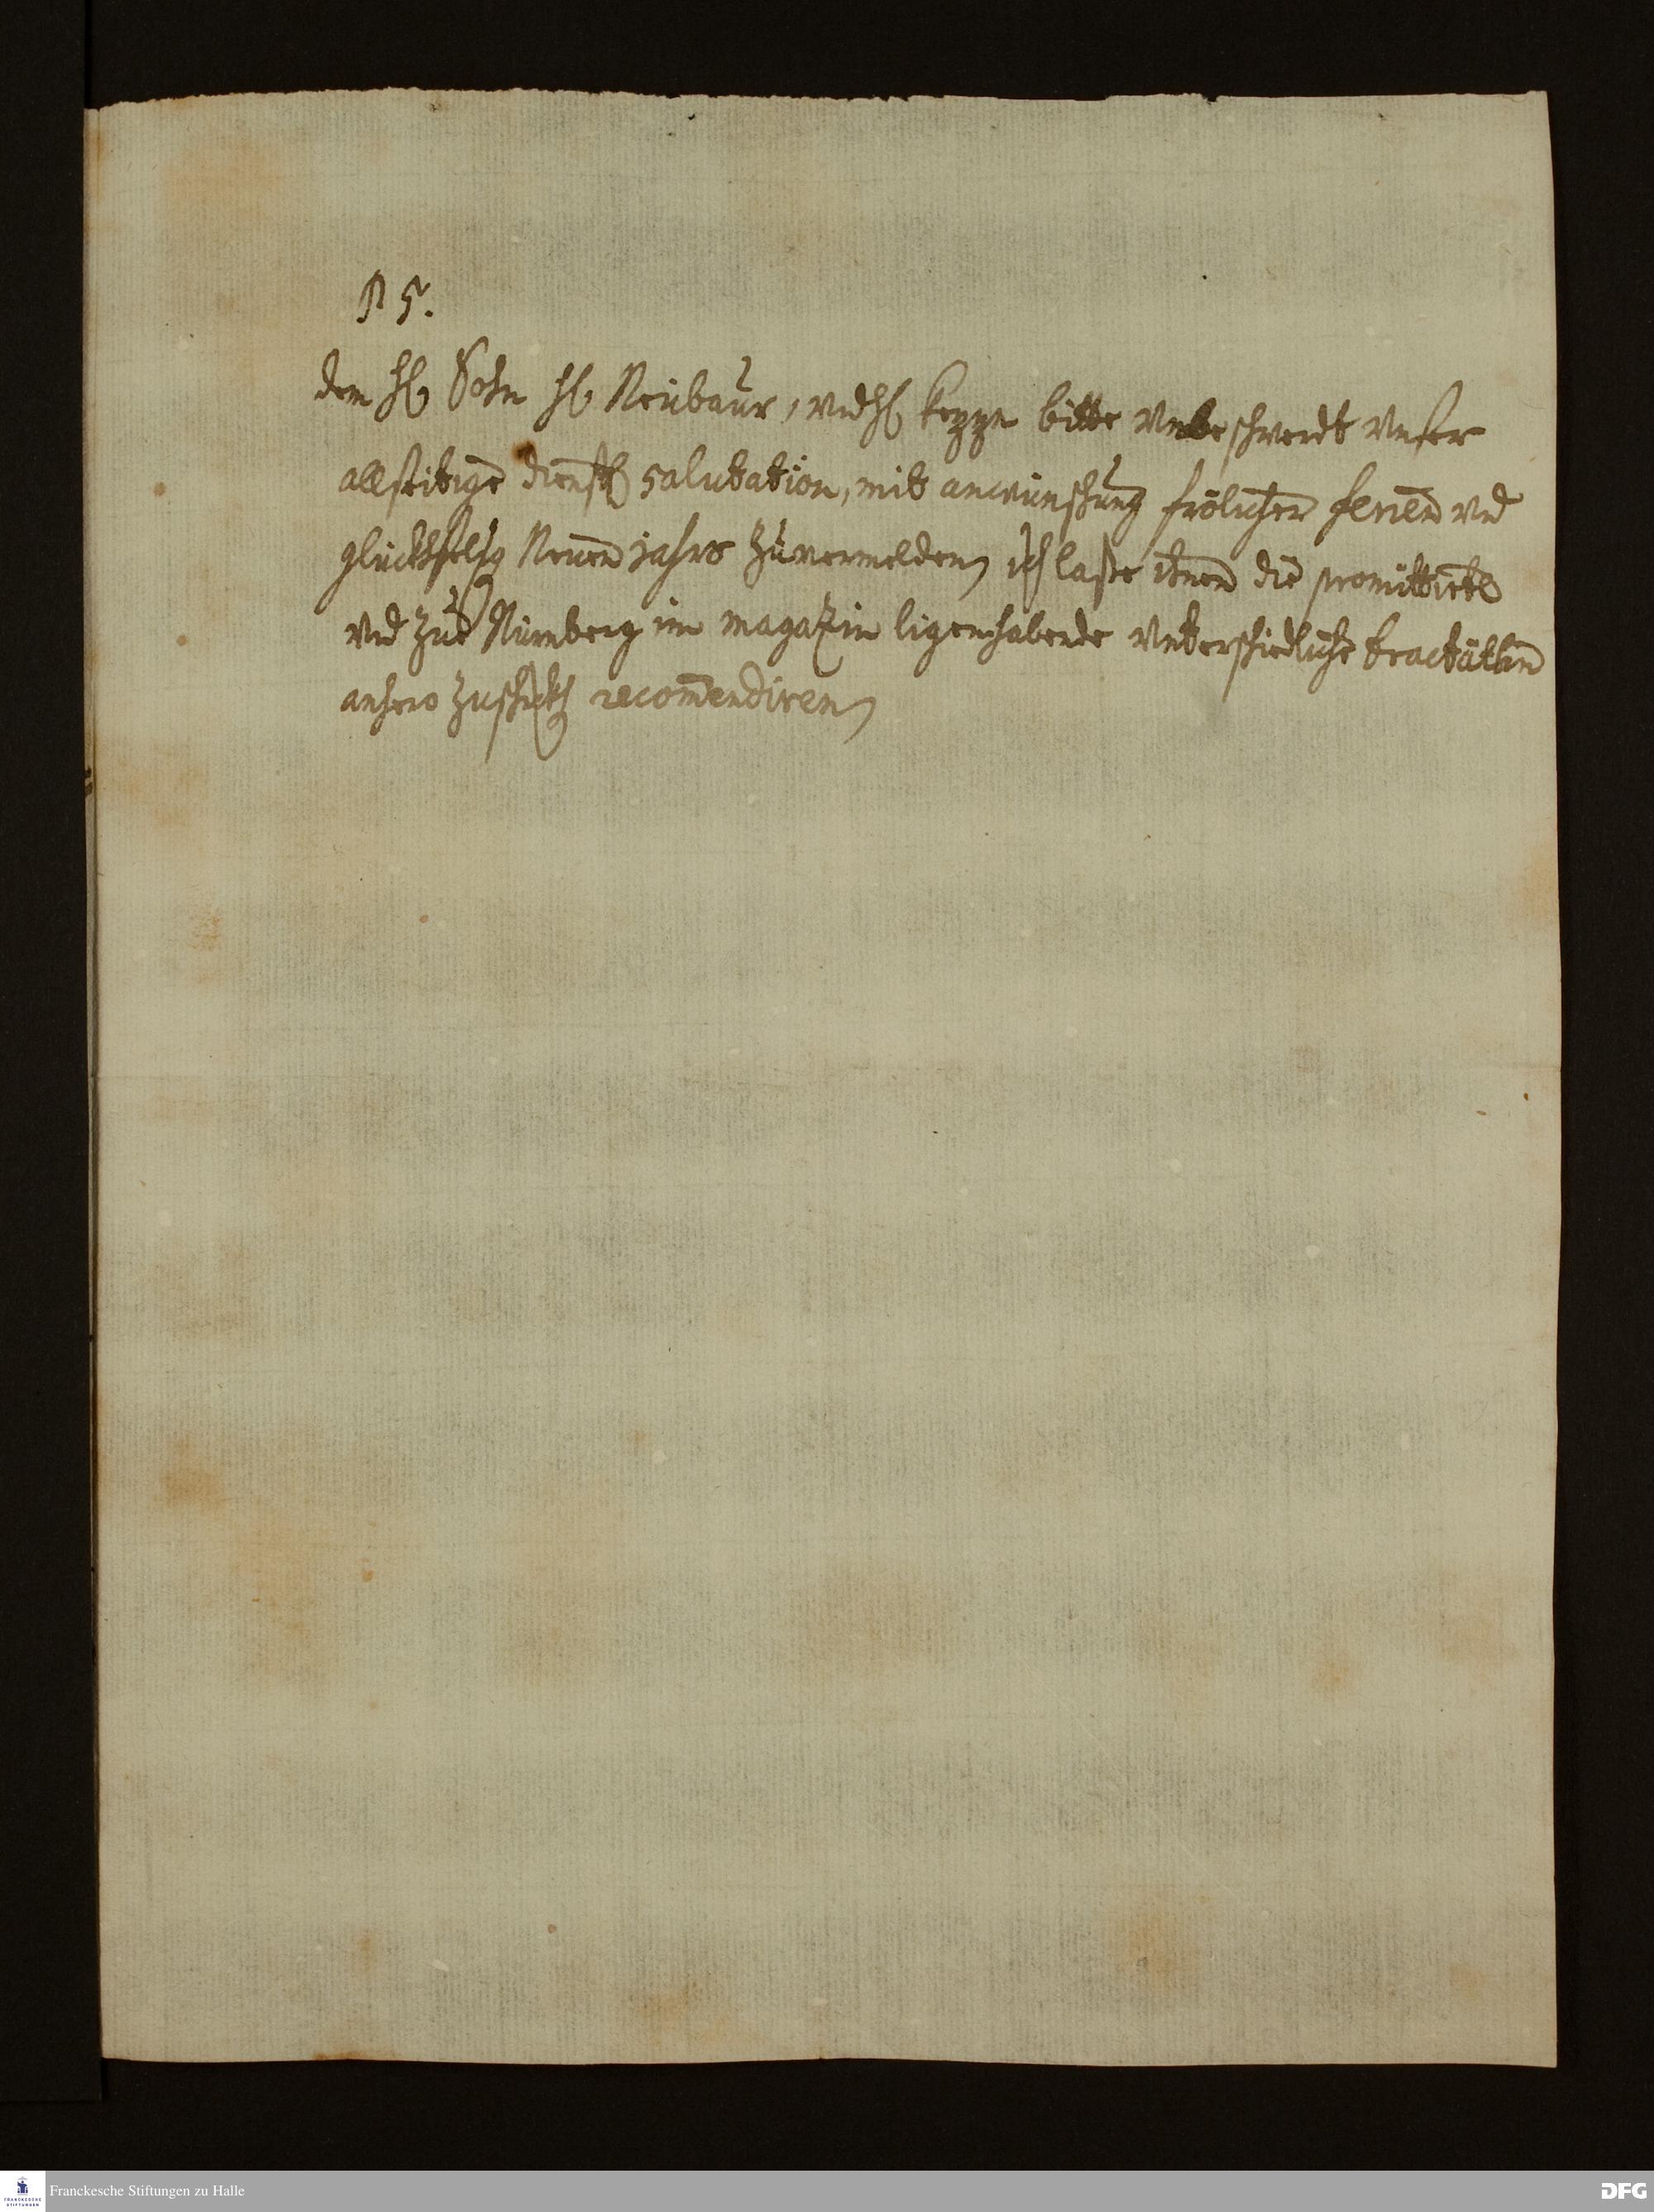 PS.
dem H. Sohn H. Neübaur, vnd H. bitte vnbeschwerdt vnser
allseitige dienstl. salutation, mit anwünschung frölicher ferien vnd
glückhseelig Neuen jahrs zuvermelden, ich laße ihnen die promittirte
vnd zue Nürnberg im magazin ligen habende vnterschiedliche tractätlin
anhero zuschickh recommendiren
Franckesche Stiftungen zu Halle
FRANCKESCHE STIFTUNGEN
DFG